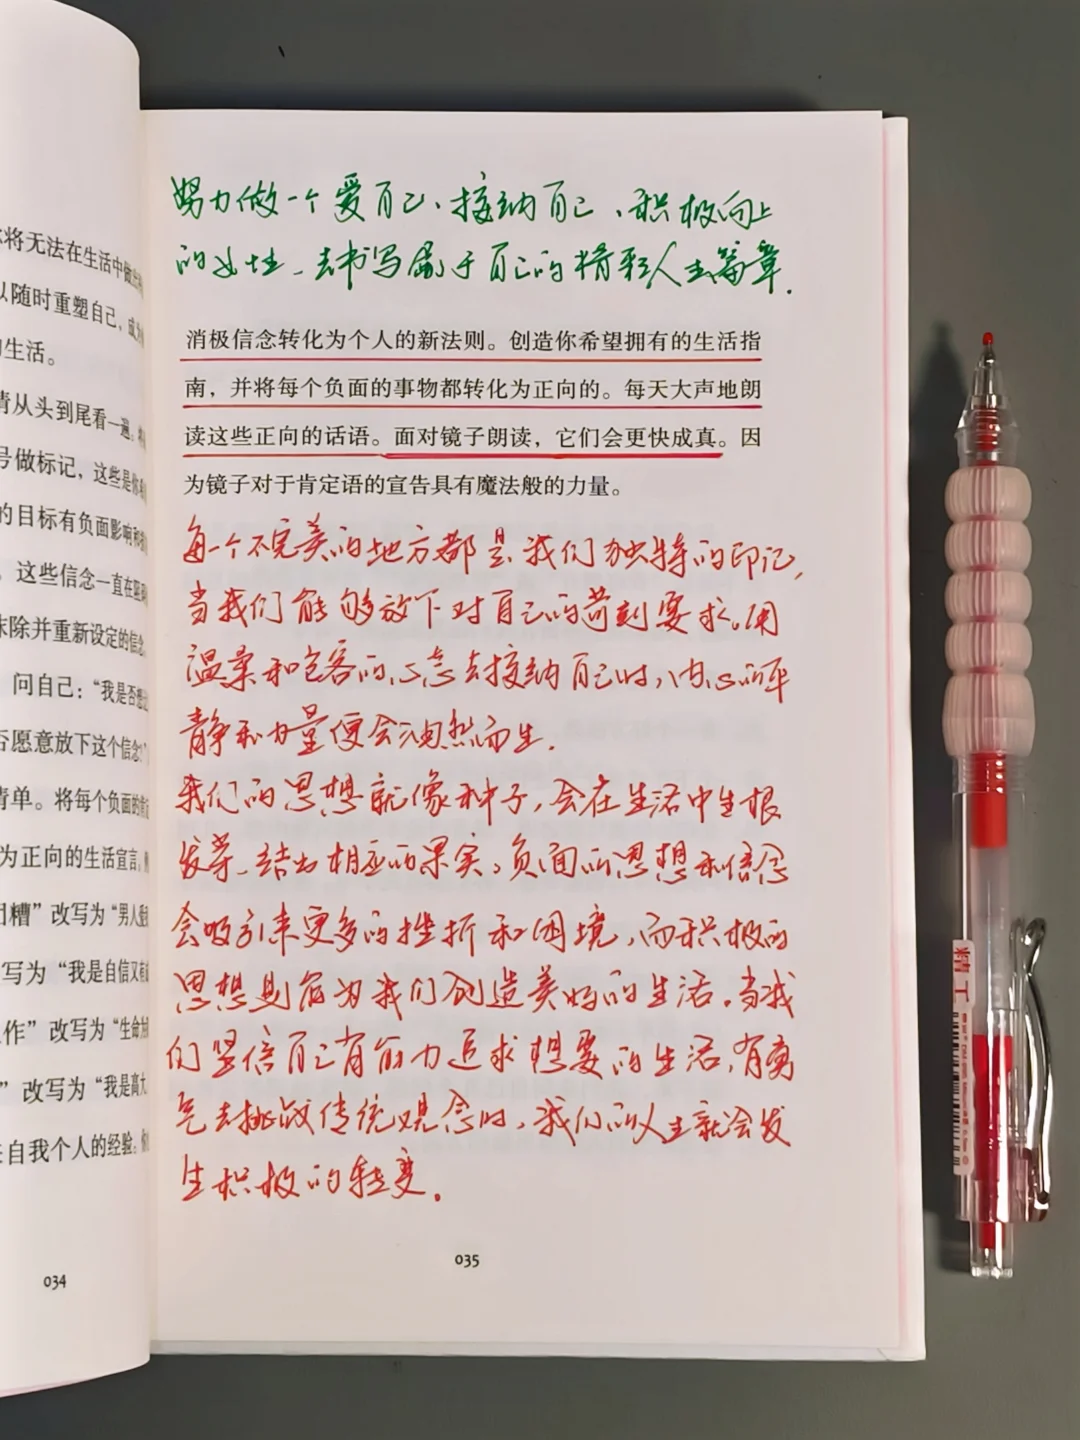 你将无法在生活中做出
以随时重塑自己，成为
的生活。
请从头到尾看一遍。
号做标记，这些是你
的目标有负面影响和
。这些信念一直在阻碍
抹除并重新设定的信念。
问自己：“我是否想
否愿意放下这个信念？”
清单。将每个负面的
为正向的生活宣言，
糟”改写为“男人
写为“我是自信又有
作”改写为“生命为
”改写为“我是高大
自我个人的经验。
034
努力做一个爱自己、接纳自己、积极向上
的女性、去书写属于自己的精彩人生篇章.
消极信念转化为个人的新法则。创造你希望拥有的生活指
南，并将每个负面的事物都转化为正向的。每天大声地朗
读这些正向的话语。面对镜子朗读，它们会更快成真。因
为镜子对于肯定语的宣告具有魔法般的力量。
每一个不完美的地方都是我们独特的印记,
当我们能够放下对自己的苛刻要求。用
温柔和包容的心态去接纳自己时,内心的平
静和力量便会油然而生.
我们的思想就像种子,会在生活中生根
发芽、结出相应的果实。负面的思想和信念
会吸引来更多的挫折和困境,而积极的
思想则能为我们创造美好的生活。当我
们坚信自己有能力追求想要的生活,有勇
气去挑战传统观念时,我们的人生就会发
生积极的转变.
035
精工